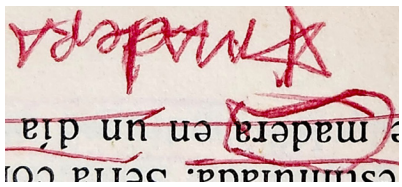 estimulada. Sería co
e madera en un día
madera